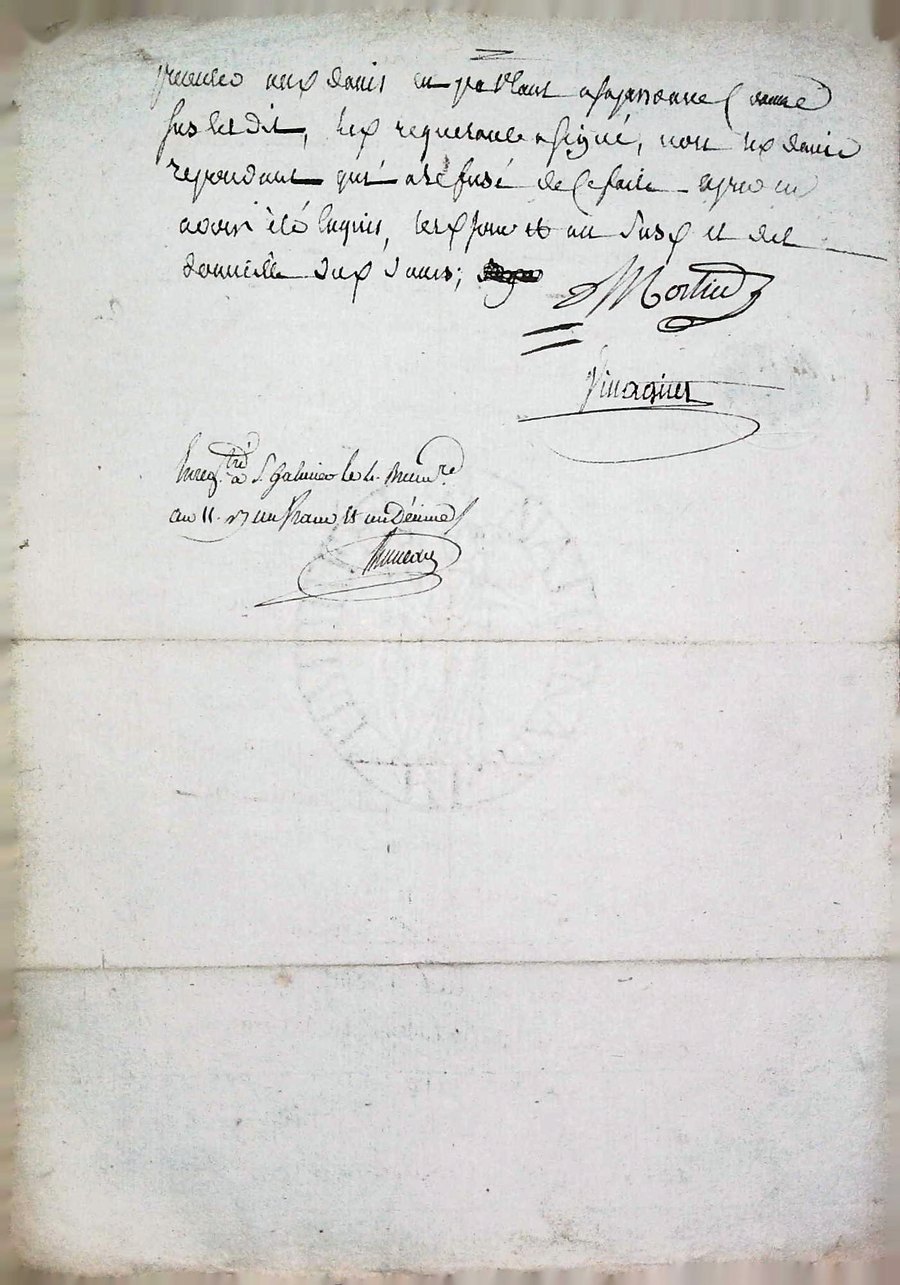 aux danis en parlant a sa personne comme
susdit, led requerant a signé, non led danis
repondant qui a refusé de ce faire apres en
avoir été enquis, lesd jour et an susd et dit
domicille dud danis;
Martin
Vinagier
Enreg.tré à S. Galmier le 4. Brum.re
an 11. r/ un franc et un Décime